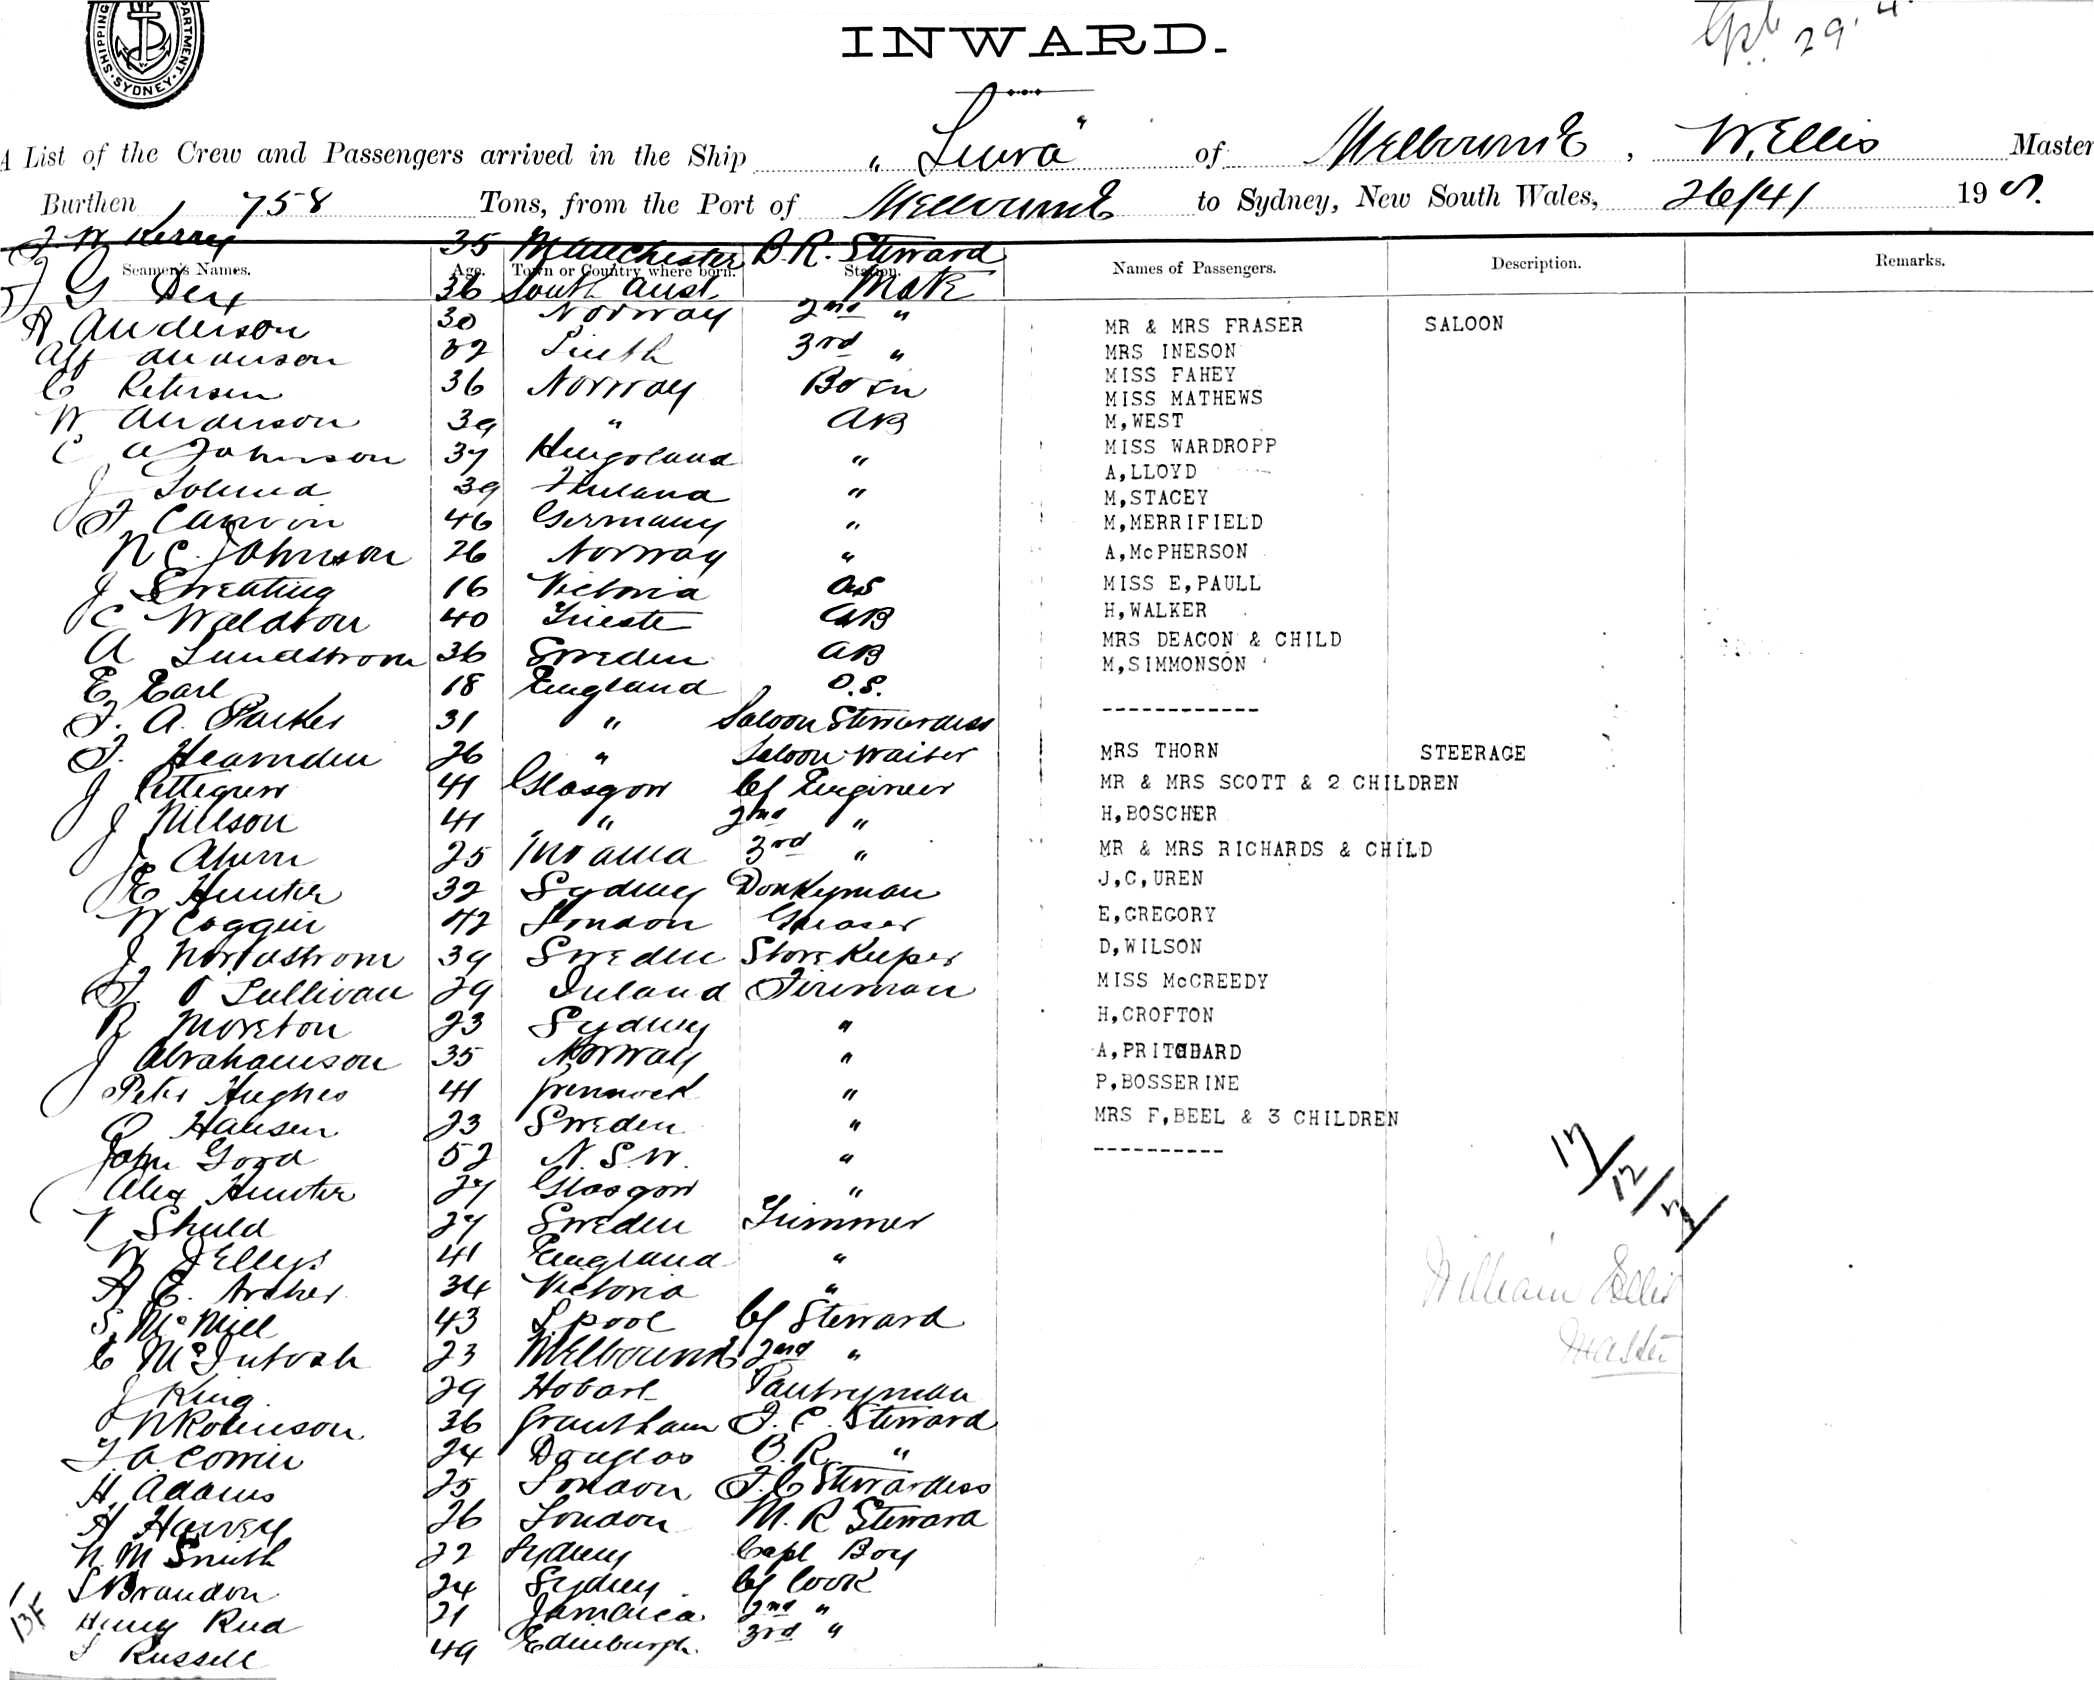 SHIPPING DEPARTMENT. SYDNEY
INWARD.
29. 4.
A List of the Crew and Passengers arrived in the Ship " " of Melbourne, W. Ellis Master
Burthen 758 Tons, from the Port of Melbourne to Sydney, New South Wales, 26/4/ 190
J W 35 Manchester B.R. Steward
Seamen's Names. Age. Town or Country where born. Station. Names of Passengers. Description. Remarks.
G 36 South Aust. Mate
A Anderson 30 Norway 2nd "
Alf Anderson 3rd " MR & MRS FRASER SALOON
C Petersen 36 Norway Bosn MRS INESON
W Anderson 39 " AB MISS FAHEY
C A Johnson 37 " MISS MATHEWS
J 39 Finland " M,WEST
F 46 Germany " MISS WARDROPP
N C. Johnson 26 Norway " A,LLOYD
J Sweating 16 Victoria OS M,STACEY
C Waldron 40 Trieste AB M,MERRIFIELD
A Lundstrom 36 Sweden AB A,McPHERSON
E Earl 18 England O.S. MISS E,PAULL
F. A. Parker 31 " Saloon Stewardess H,WALKER
F. Hearnden 26 " Saloon Waiter MRS DEACON & CHILD
J Pettigrew 41 Glasgow Cf Engineer M,SIMMONSON
J Neilson 41 " 2nd " ------------
J Ahern 25 Moama 3rd " MRS THORN STEERAGE
E Hunter 32 Sydney Donkeyman MR & MRS SCOTT & 2 CHILDREN
W Coggin 42 London Greaser H,BOSCHER
J Nordstrom 39 Sweden Store Keeper MR & MRS RICHARDS & CHILD
F. O Sullivan 29 Ireland Fireman J,C,UREN
R Moreton 23 Sydney " E,GREGORY
J Abrahamson 35 Norway " D,WILSON
Peter Hughes 41 Greenock " MISS McCREEDY
O Hansen 23 Sweden " H,CROFTON
John Good 52 N.S.W. " A,PRITCHARD
Alex Hunter 27 Glasgow " P,BOSSERINE
Shuld 27 Sweden Trimmer MRS F,BEEL & 3 CHILDREN
W 41 England " ----------
A E. Archer 34 Victoria " 17/12/
S. McNiel 43 Lpool Cf Steward William Ellis
C McIntosh 23 Melbourne 2nd " Master
J King 29 Hobart Pantryman
W Robinson 36 Grantham F.C. Steward
24 Douglas B.R. "
H. Adams 25 London F.C Stewardess
A Harvey 26 London M.R Steward
N. M Smith 22 Sydney Capt Boy
S Brandon 24 Sydney Cf Cook
Henry Reid 21 Jamaica 2nd "
Russell 49 Edinburgh. 3rd "